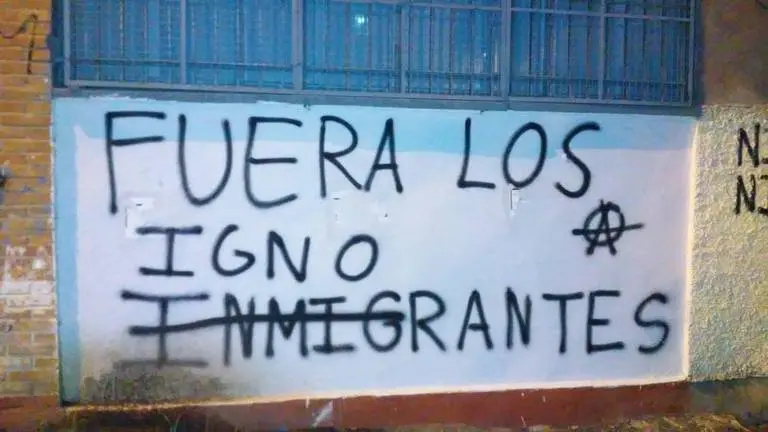 FUERA LOS
IGNO
INMIGRANTES
A
NI
NI